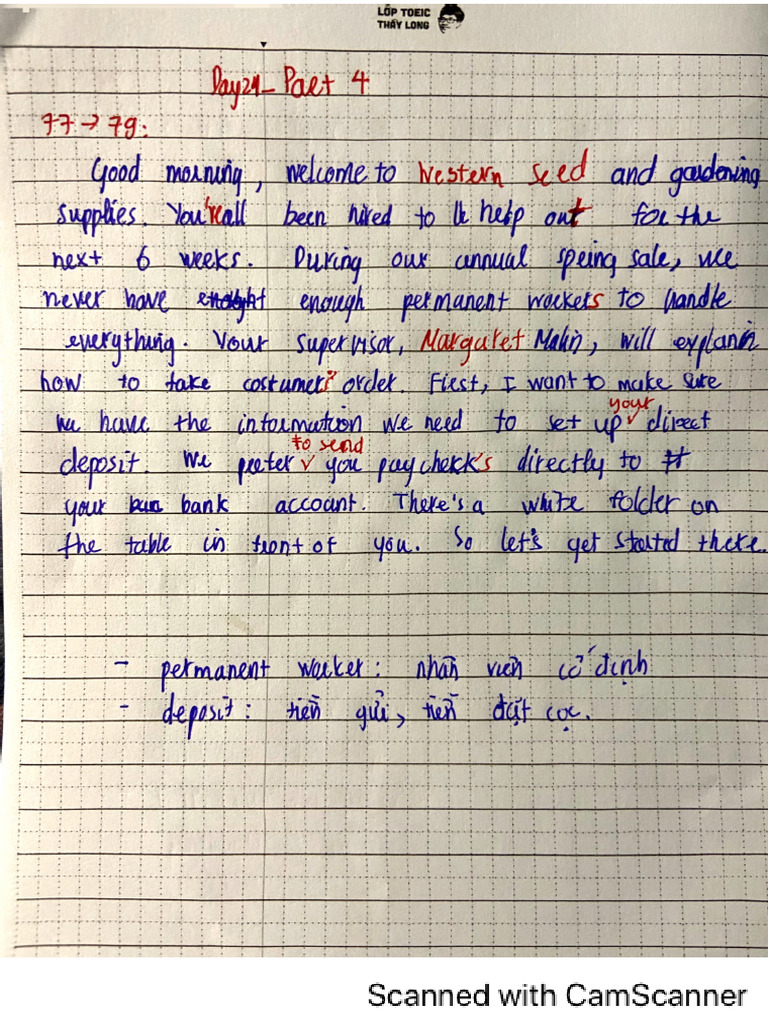 LỚP TOEIC
THẦY LONG
Day24_ Part 4
77 → 79:
Good morning, welcome to Western seed and gardening
supplies. You're all been hired to help out for the
next 6 weeks. During our annual spring sale, we
never have enough permanent workers to handle
everything. Your supervisor, Margaret Malin, will explain
how to take costumers' order. First, I want to make sure
we have the information we need to set up your direct
deposit. We prefer to send you paycheck's directly to
your bank account. There's a white folder on
the table in front of you. So let's get started there.
- permanent worker: nhân viên cố định
- deposit: tiền gửi, tiền đặt cọc.
Scanned with CamScanner